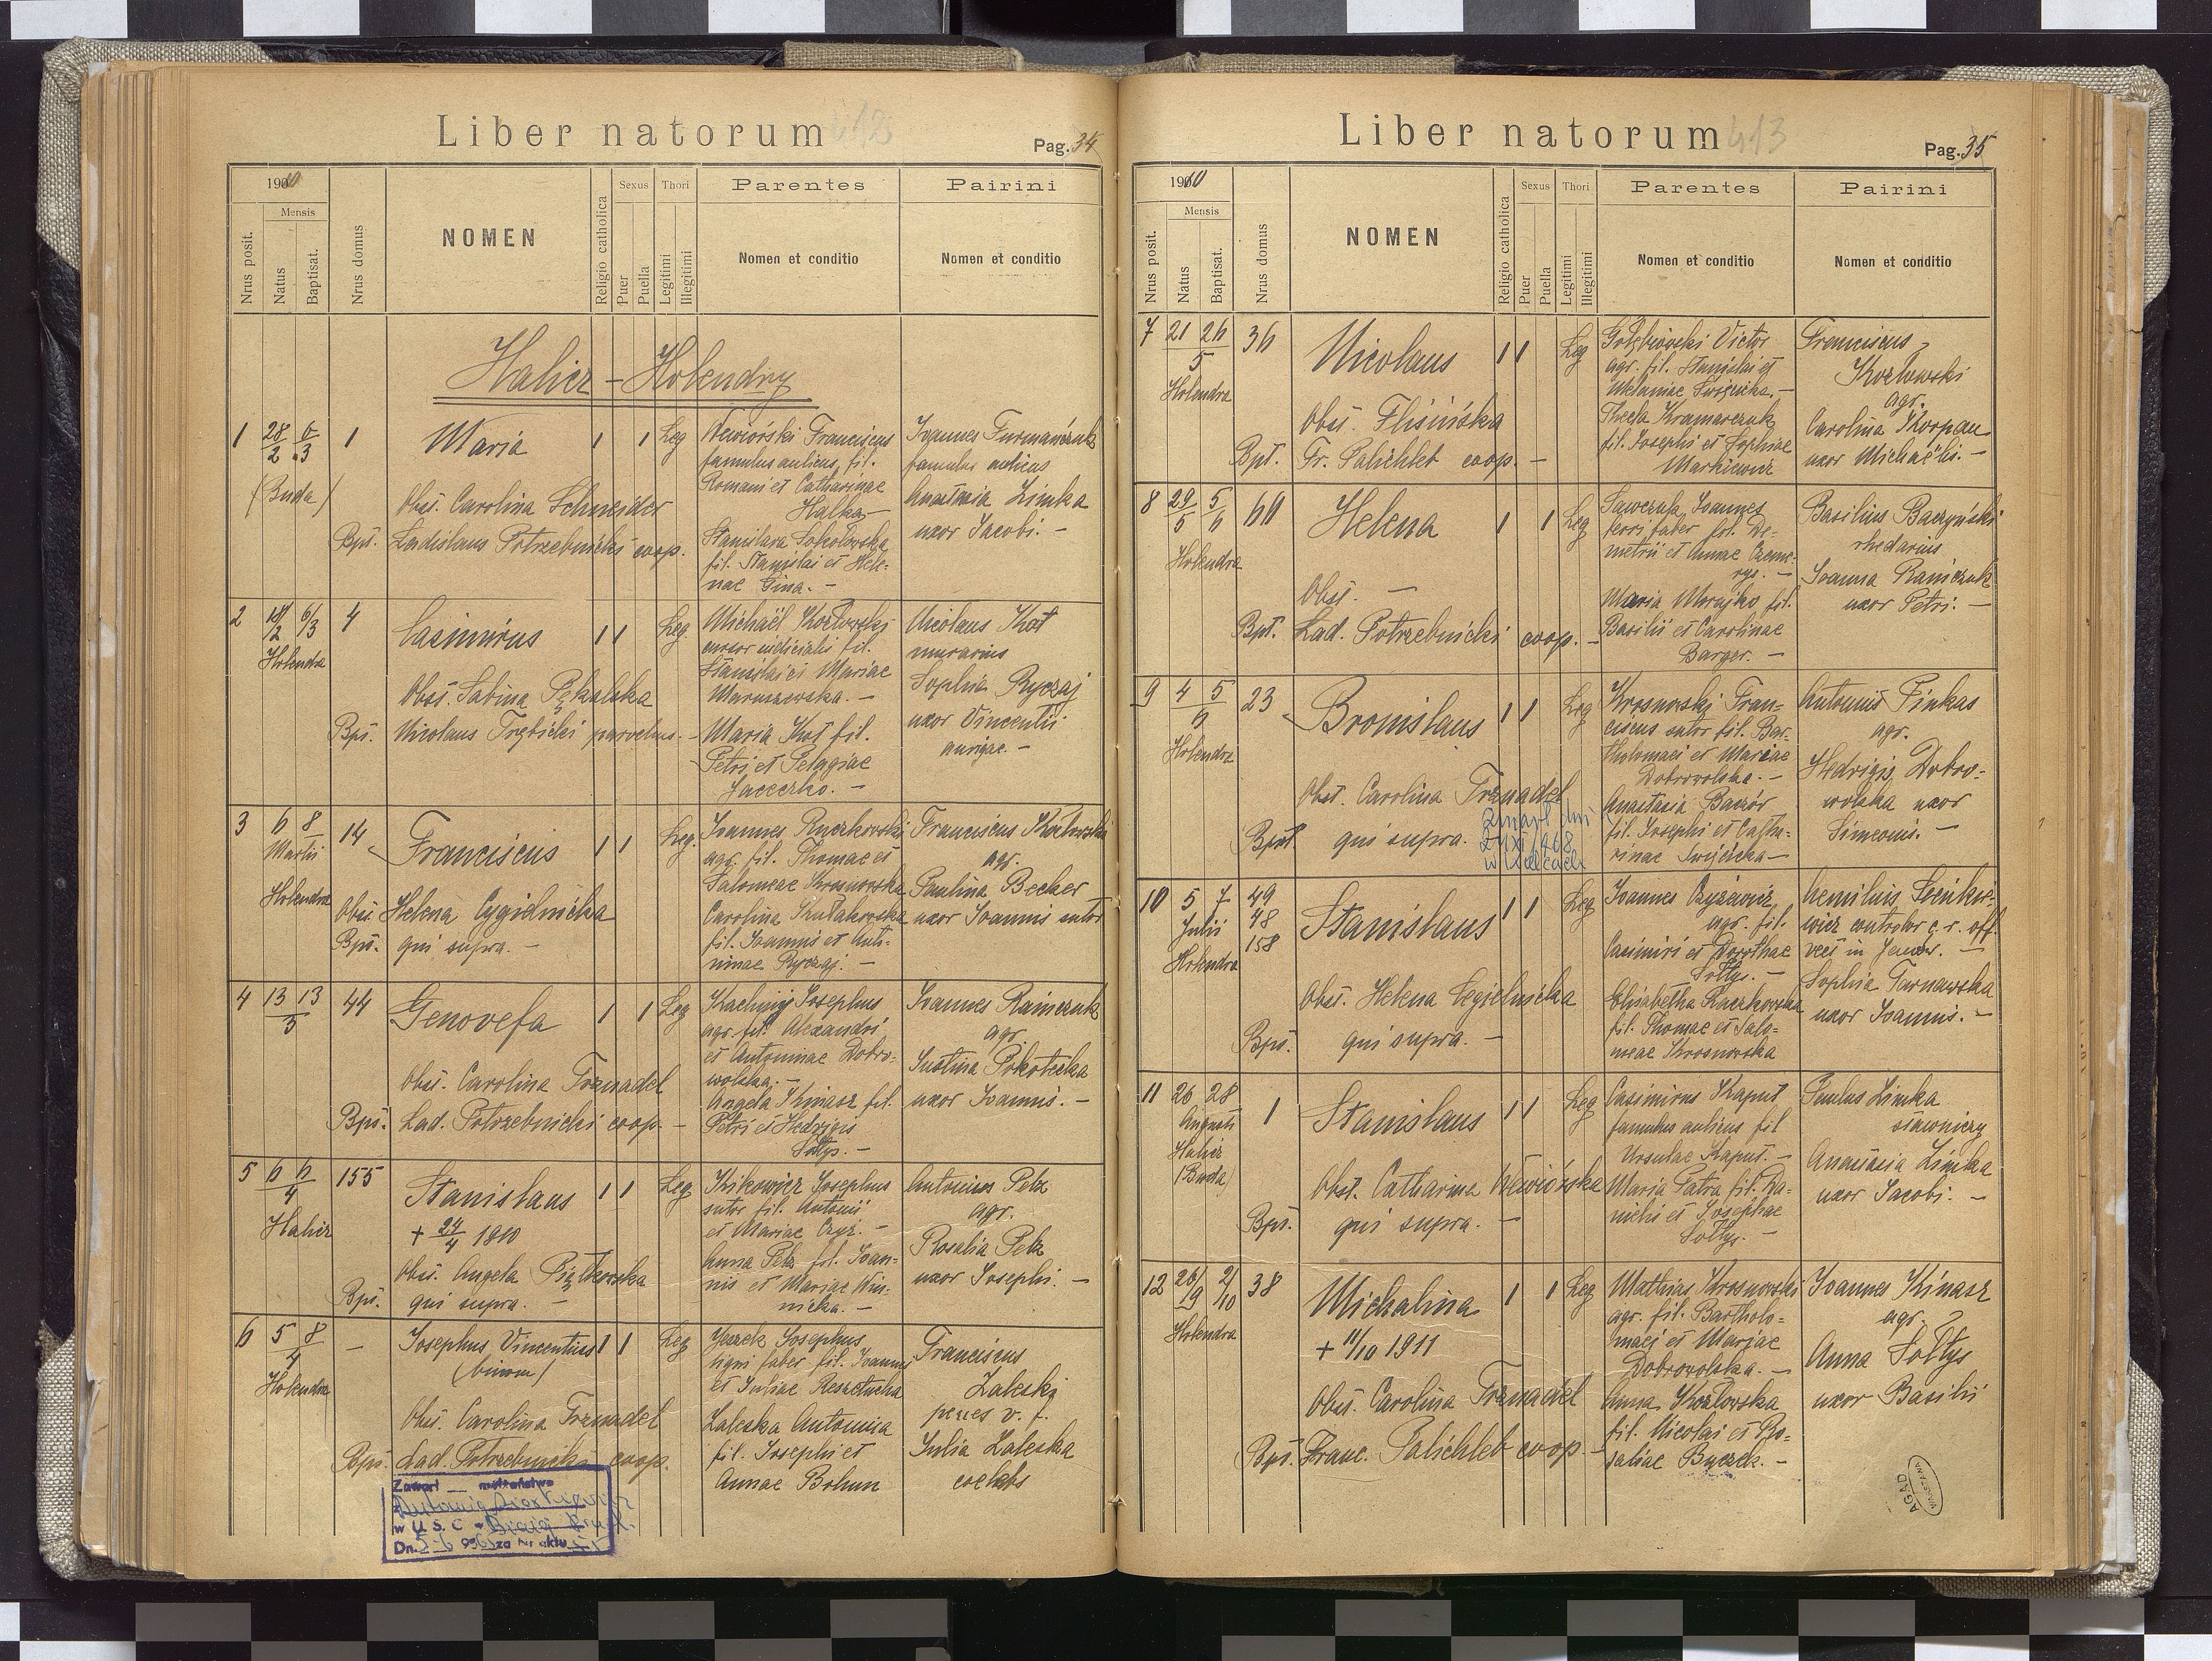 Liber natorum 412
Pag. 34
1910
Nrus posit.
Mensis
Natus
Baptisat.
Nrus domus
NOMEN
Religio catholica
Sexus
Puer
Puella
Thori
Legitimi
Illegitimi
Parentes
Nomen et conditio
Pairini
Nomen et conditio
Halicz - Holendry
1 28/2 6/3 1
(Buda)
Maria
1 1 Leg
Obst. Carolina Schneider
Bpt. Ladislaus Potrzebnicki coop.
Wewiórski Franciscus
famulus aulicus, fil.
Romani et Catharinae
Halka. -
Stanislava Sokołowska
fil. Stanislai et Hele-
nae Gina. -
Joannes Furmańczuk
famulus aulicus
Anastasia Limka
uxor Jacobi. -
2 18/2 6/3 4
Holendra
Casimirus
1 1 Leg
Obst. Sabina Pękalska
Bpt. Nicolaus Trębicki parochus. -
Michaël Kozłowski
cursor iudicialis fil.
Stanislai et Mariae
Maruszewska. -
Maria Kot fil.
Petri et Pelagiae
Nicolaus Kot
murarius
Sophia Ryczaj
uxor Vincentii
aurigae. -
3 6 8 14
Martii
Holendra
Franciscus
1 1 Leg.
Obst. Helena Cygielnicka
Bpt. qui supra. -
Joannes Ruczkowski
agr. fil. Thomae et
Salomeae Krosnowska
Carolina Skulakowska
fil. Joannis et Anto-
ninae Ryczaj. -
Franciscus Kozłowski
agr.
Paulina Becher
uxor Joannis sutor
4 13 13 44
3
Genovefa
1 1 Leg
Obst. Carolina Trznadel
Bpt. Lad. Potrzebnicki coop. -
Josephus
agr. fil. Alexandri
et Antoninae Dobro-
wolska. -
Angela Kinasz fil.
Petri et Hedvigis
Sołtys. -
Joannes Rainczuk
agr.
Justina Pokotecka
uxor Joannis. -
5 6 6 155
4
Halicz
Stanislaus
+ 24/4 1910
1 1 Leg
Obst. Angela Piątkowska
Bpt. qui supra. -
Kikowicz Josephus
sutor fil. Antonii
et Mariae Czyż. -
Anna Pelz fil. Joan-
nis et Mariae Win-
nicka. -
Antonius Pelz
agr.
Rosalia Pelz
uxor Josephi. -
6 5 8 -
4
Holendra
Josephus Vincentius
(binom)
1 1 Leg
Obst. Carolina Trznadel
Bpt. Lad. Potrzebnicki coop.
Josephus
ligni faber fil. Joannis
et Juliae Reszetucha
Zaleska Antonia
fil. Josephi et
Annae Bohun
Franciscus
Zaleski
penes v. f.
Julia Zaleska
coelebs
Zawarł małżeństwo
w U.S.C.
Dn. za Nr aktu
Liber natorum 413
Pag. 35
1910
Nrus posit.
Mensis
Natus
Baptisat.
Nrus domus
NOMEN
Religio catholica
Sexus
Puer
Puella
Thori
Legitimi
Illegitimi
Parentes
Nomen et conditio
Pairini
Nomen et conditio
7 21 26 36
5
Holendra
Nicolaus
1 1 Leg
Obst. Flisińska
Bpt. Fr. Palichleb coop. -
Gołębiowski Victor
agr. fil. Stanislai et
Melaniae
Thecla Kramarczuk
fil. Josephi et Sophiae
Markiewicz
Franciscus
Kozłowski
agr.
Carolina Skorpan
uxor Michaëlis. -
8 29/5 5/6 60
Holendra
Helena
1 1 Leg
Obst. -
Bpt. Lad. Potrzebnicki coop. -
Sawczuk Joannes
ferri faber fil. De-
metrii et Annae Czeme-
rys. -
Maria Murajko fil.
Basilii et Carolinae
Barger. -
Basilius Baczyński
rhedarius
Joanna Rainczuk
uxor Petri. -
9 4 5 23
6
Holendra
Bronislaus
1 1 Leg
Obst. Carolina Trznadel
Bpt. qui supra.
Zmarł dni
1968
w
Krosnowski Fran-
ciscus sutor fil. Bar-
tholomaei et Mariae
Dobrowolska. -
Anastasia Baczór
fil. Josephi et Catha-
rinae Święcicka -
Antonius Pinkas
agr.
Hedvigis Dobro-
wolska uxor
Simeonis. -
10 5 7 49
Julii 48
Holendra 158
Stanislaus
1 1 Leg
Obst. Helena Cegielnicka
Bpt. qui supra. -
Joannes Czyżewicz
agr. fil.
Casimiri et Dorothae
Sołtys. -
Elisabetha Ruczkowska
fil. Thomae et Salo-
meae Krosnowska
Aemilius Sienkie-
wicz controlor c. r. off.
vect in -
Sophia Tarnawska
uxor Joannis. -
11 26 28 1
Augusti
Halicz
(Buda)
Stanislaus
1 1 Leg
Obst. Catharina Wewiórska
Bpt. qui supra. -
Casimirus Kaput
famulus aulicus fil
Ursulae Kaput. -
Maria Patra fil. Da-
nielis et Josephae
Sołtys. -
Paulus Limka
stawniczy
Anastasia Limka
uxor Jacobi. -
12 26/9 2/10 38
Holendra
Michalina
+ 11/10 1911
1 1 Leg
Obst. Carolina Trznadel
Bpt. Franc. Palichleb coop. -
Mathias Krosnowski
agr. fil. Bartholo-
maei et Mariae
Dobrowolska. -
Anna Kozłowska
fil. Nicolai et Ro-
saliae Byczek. -
Joannes Kinasz
agr.
Anna Sołtys
uxor Basilii
AGAD
WARSZAWA